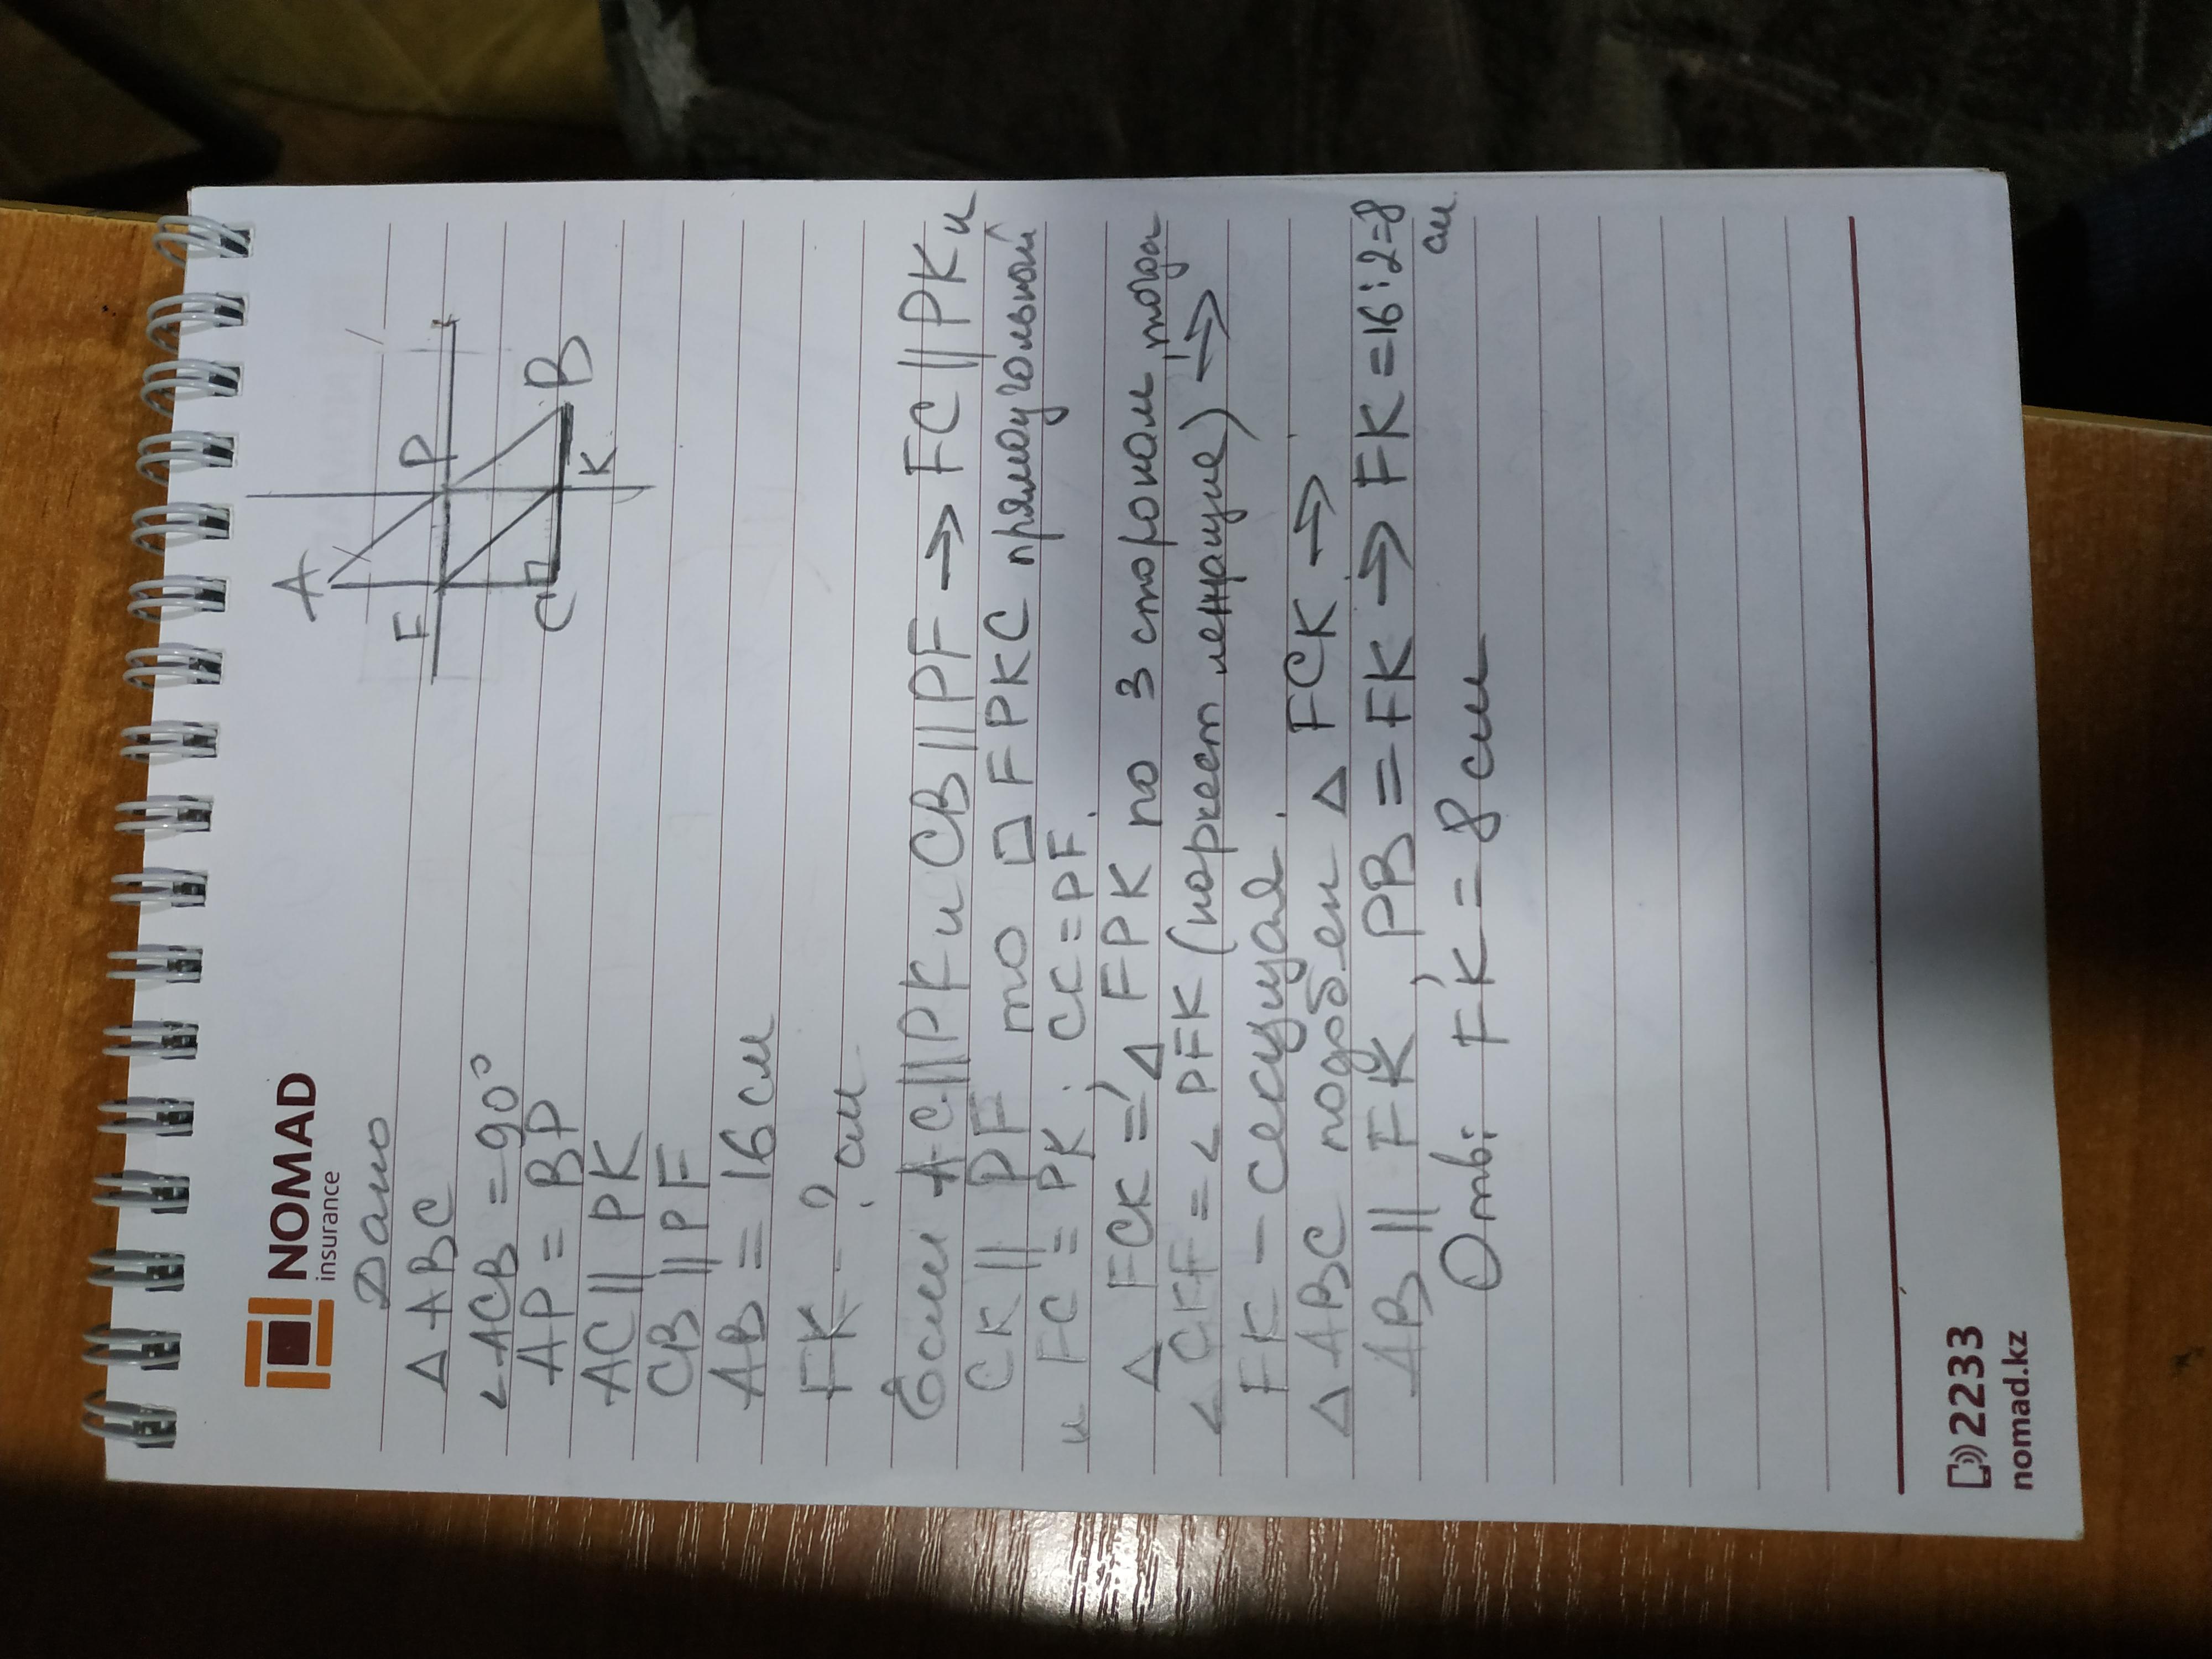 NOMAD
insurance
Дано
△ ABC
∠ACB = 90°
AP = BP
AC || PK
CB || PF
AB = 16 см
FK - ? см
A
F
P
C
K
B
Если AC||PK и CB||PF → FC||PK и
CK || PF то □ FPKC прямоугольный
и FC = PK, CK = PF.
△ FCK = △ FPK по 3 сторонам, тогда
∠ CKF = ∠ PFK (накрест лежащие) →
FK - секущая.
△ ABC подобен △ FCK →
AB || FK, PB = FK → FK = 16:2=8
см
Отв: FK = 8 см
2233
nomad.kz